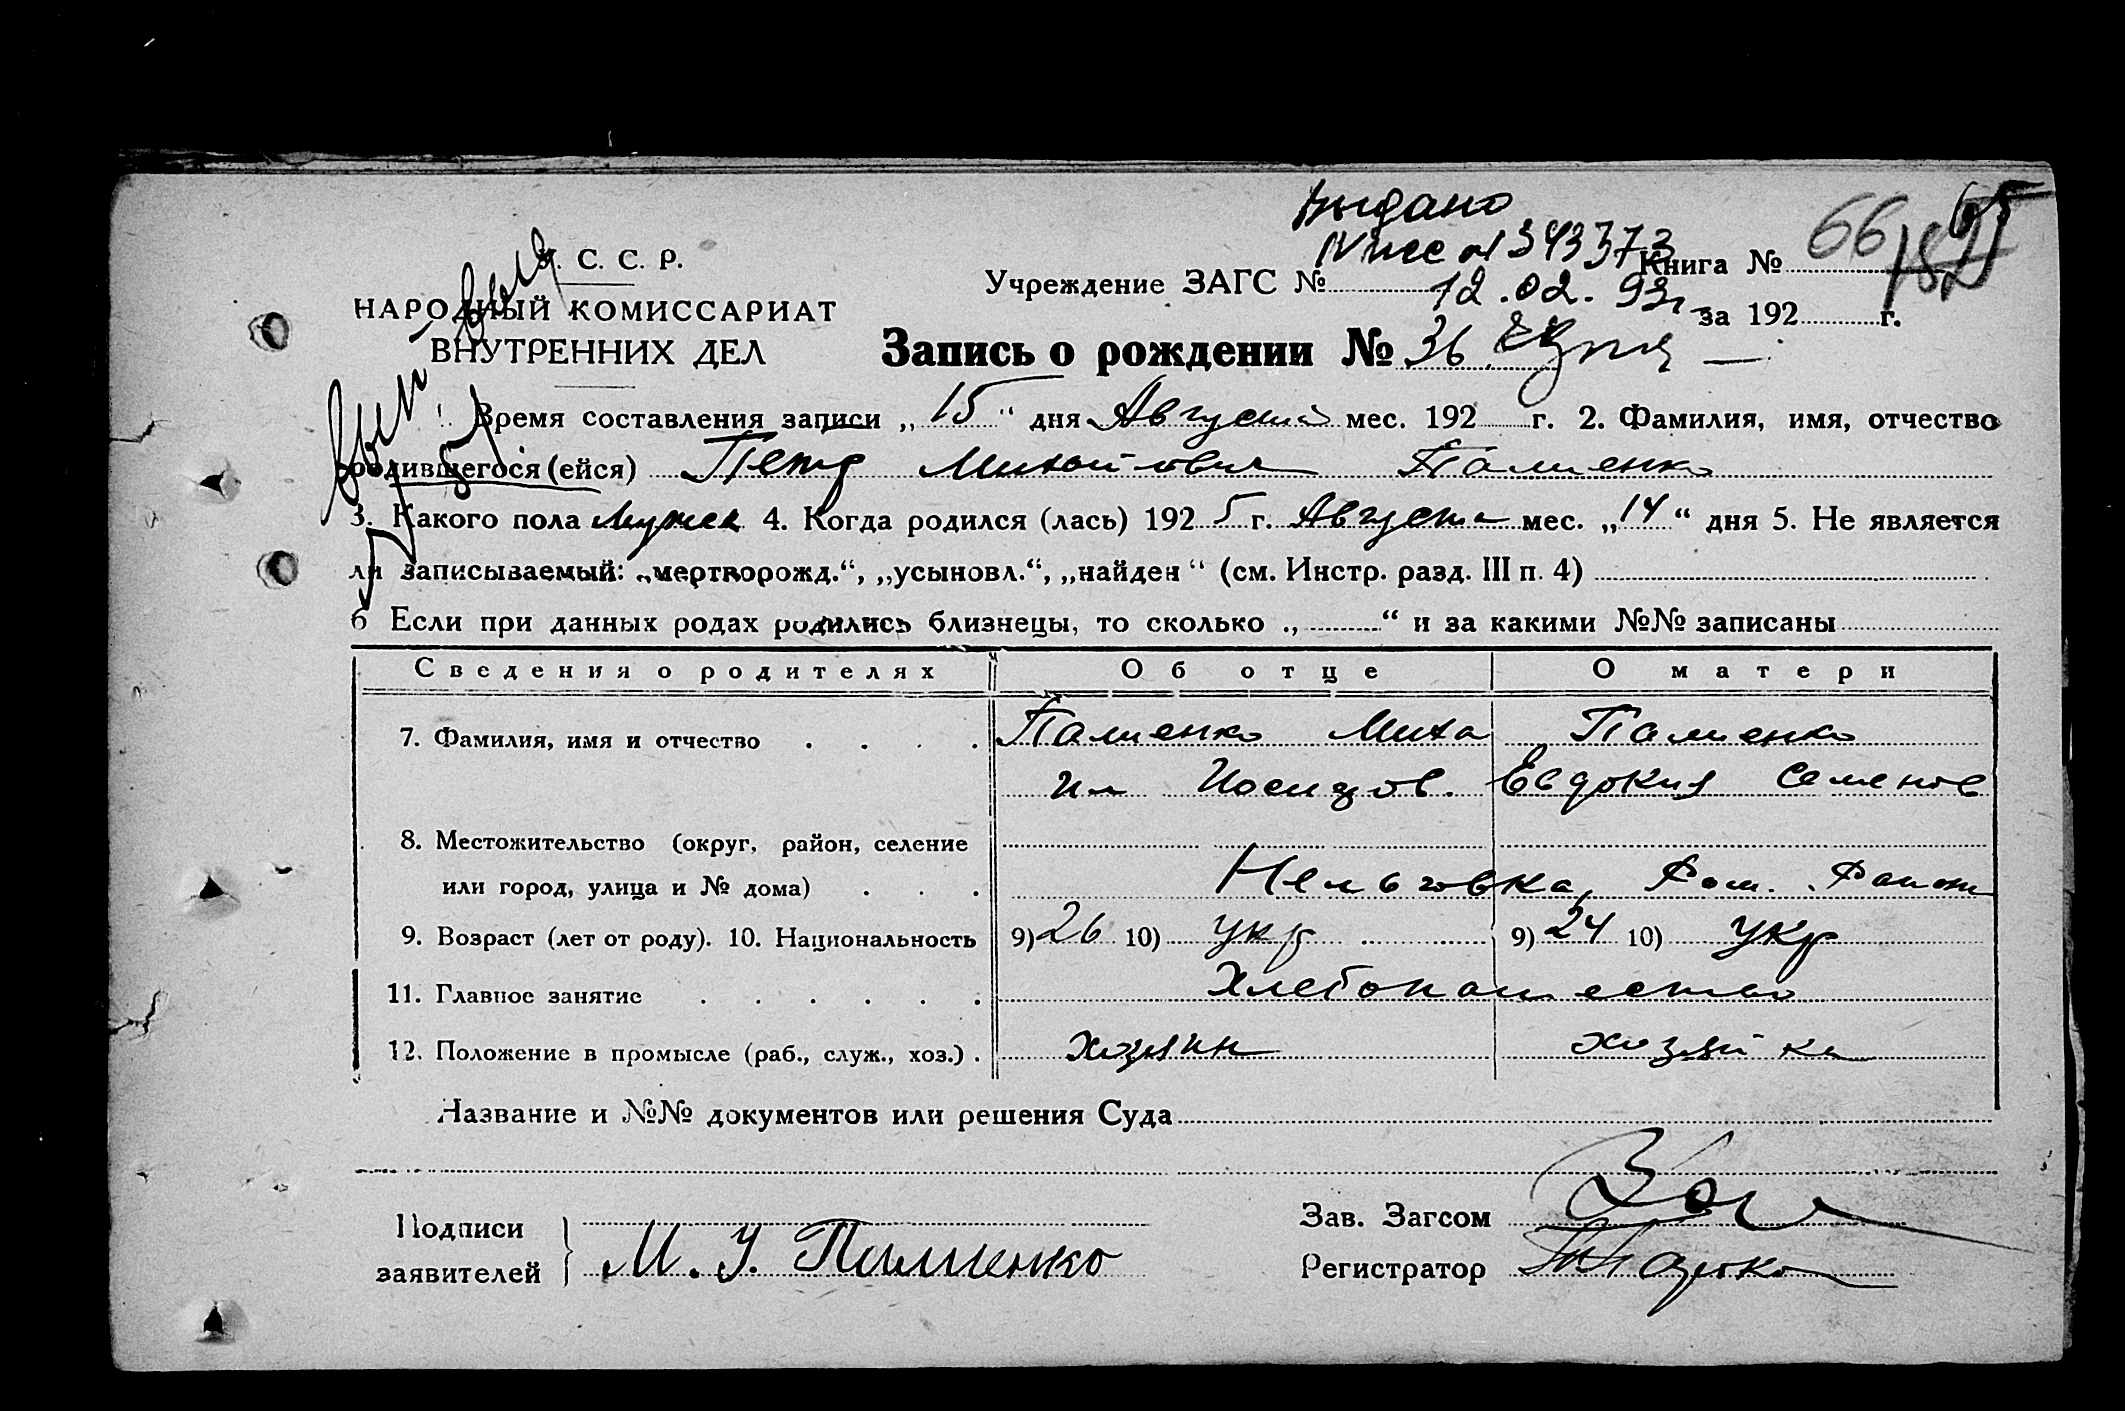 Выдано
№ 343373
12.02.93г.
66
С. С. Р.
НАРОДНЫЙ КОМИССАРИАТ
ВНУТРЕННИХ ДЕЛ
Учреждение ЗАГС № Книга №
за 192 г.
Запись о рождении № 36
Время составления записи „15“ дня Августа мес. 192 г. 2. Фамилия, имя, отчество
родившегося (ейся) Петр Михайлович Палиенко
3. Какого пола мужск 4. Когда родился (лась) 192 5 г. Августа мес. „14“ дня 5. Не является
ли записываемый: „мертворожд.“, „усыновл.“, „найден“ (см. Инстр. разд. III п. 4)
6 Если при данных родах родились близнецы, то сколько „ “ и за какими №№ записаны
Сведения о родителях Об отце О матери
7. Фамилия, имя и отчество . . . . Палиенко Миха Палиенко
ил Иосифов. Евдокия Семенов
8. Местожительство (округ, район, селение
или город, улица и № дома) . . . Ром. Района
9. Возраст (лет от роду). 10. Национальность 9) 26 10) укр 9) 24 10) укр
11. Главное занятие . . . . . . Хлебопашество
12. Положение в промысле (раб., служ., хоз.) . хозяин хозяйка
Название и №№ документов или решения Суда
Подписи
заявителей М. И. Палиенко
Зав. Загсом
Регистратор